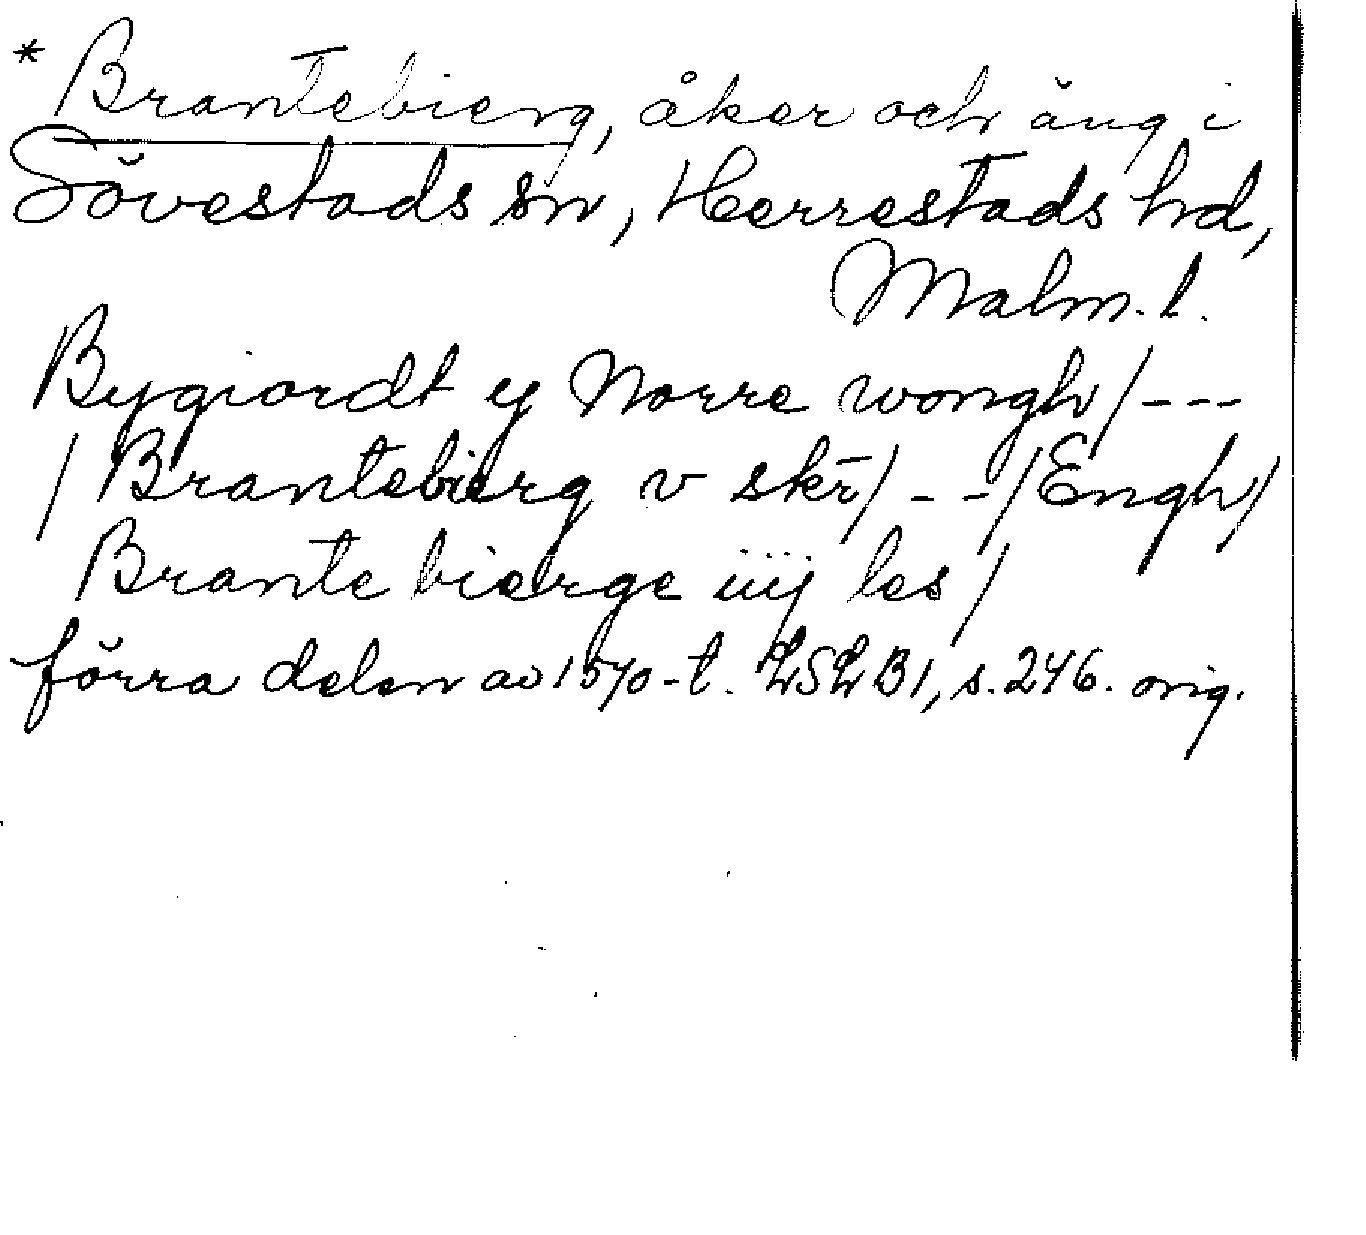 * Brantebierg, åker och äng i
Sövestads sn, Herrestads hd,
Malm. l.
Bygiordt ej Norre wongh/---
/ Brantebierg v skr̄/ - -/Engh/
Brante bierge iiij les /
förra delen av 1570-t. LSLB1, s. 246. orig.